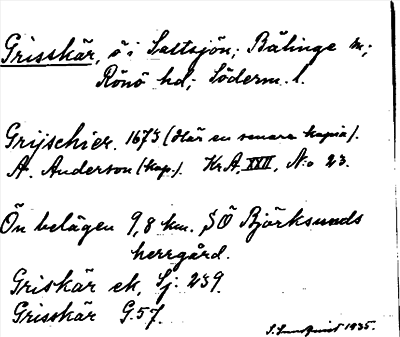 Grisskär, ö i Saltsjön; Bälinge sn;
Rönö hd; Söderm. l.
Grijschier. 1673 (här en senare kopia).
A. Anderson (kop.). Kr.A, XXII, N:o 23.
Ön belägen 9,8 km. SÖ Björksunds
herrgård.
Griskär ek, Sj: 239.
Grisskär G.57.
1935.